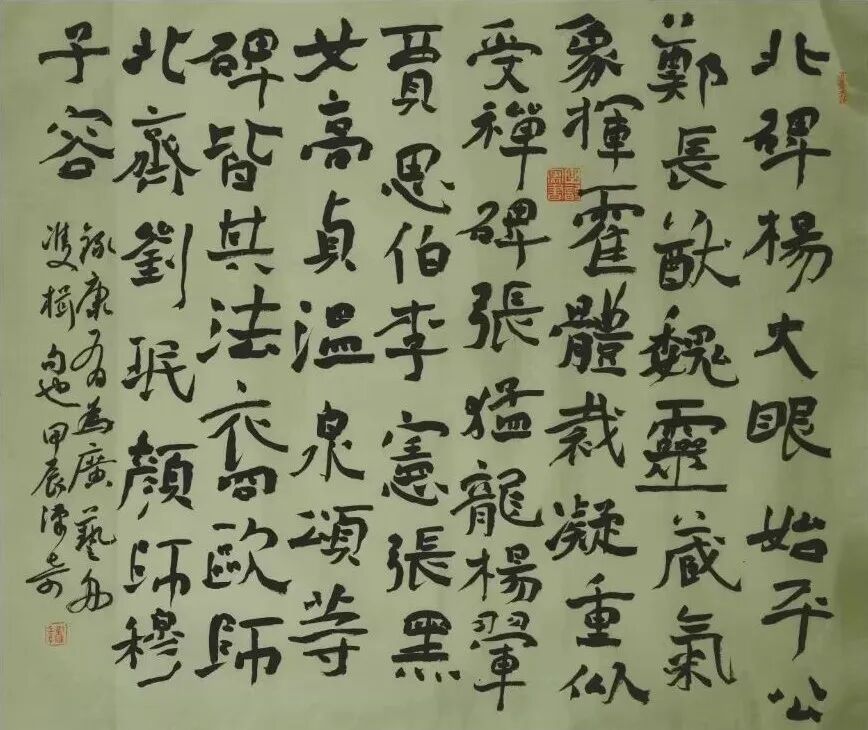 北碑楊大眼始平公
鄭長猷魏靈蔵氣
象揮霍體裁凝重似
受禪碑張猛龍楊翬
賈思伯李憲張黑
女高貞溫泉頌等
碑皆其法裔歐師
北齊劉珉顏師穆
子容
錄康有為廣藝舟
雙楫句也甲辰